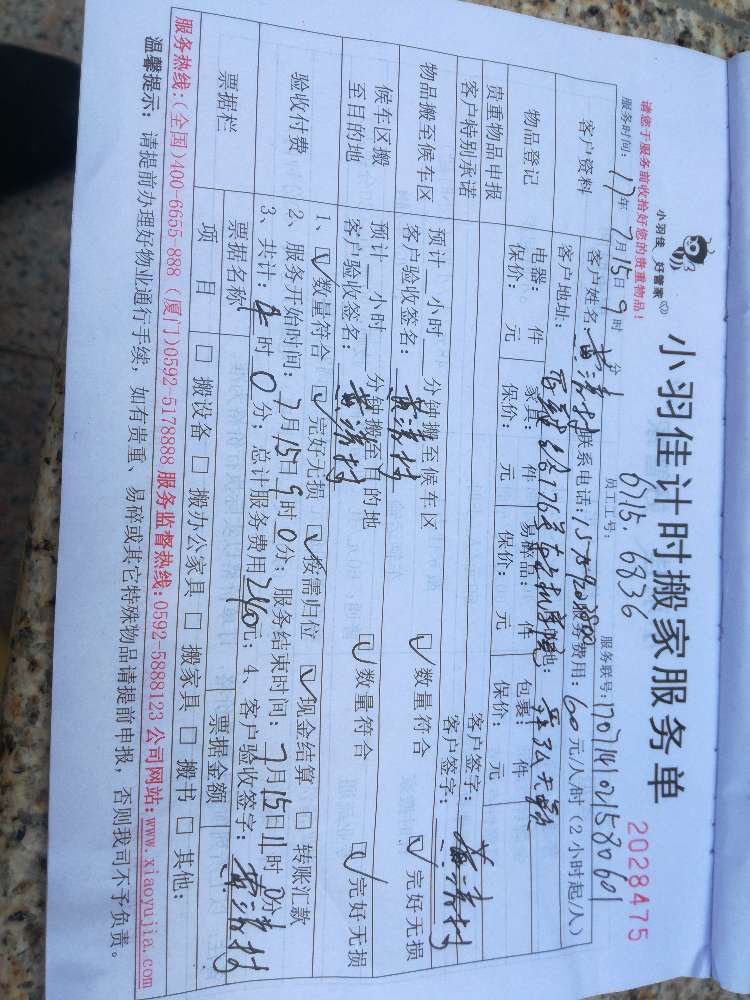 小羽佳 好管家
小羽佳计时搬家服务单
2028475
请您于服务前收拾好您的贵重物品！
6715, 6836
服务时间：17年7月15日9时 分
员工工号：
服务联号：
客户资料
客户姓名：
联系电话：
服务费用：60元/人/时（2小时起/人）
客户地址：
物品登记
电器： 件 家具： 件 易碎品： 件 包裹： 件
保价： 元 保价： 元 保价： 元 保价： 元
贵重物品申报
客户签字：
客户特别承诺
客户签字：
物品搬至候车区
预计 小时 分钟搬至候车区
客户验收签名： ☑ 数量符合 ☑ 完好无损
候车区搬至目的地
预计 小时 分钟搬至目的地
客户验收签名： ☑ 数量符合 ☑ 完好无损
验收付费
1、☑ 数量符合 ☑ 完好无损 ☑ 按需归位 ☑ 现金结算 □ 转账汇款
2、服务开始时间：7月15日9时0分；服务结束时间：7月15日11时0分
3、共计：4时0分；总计服务费用240元；4、客户验收签字：
票据栏
票据名称 票据金额
项 目 □ 搬设备 □ 搬办公家具 □ 搬家具 □ 搬书 □ 其他：
服务热线：(全国)400-6655-888 (厦门)0592-5178888 服务监督热线：0592-5888123 公司网站：www.xiaoyujia.com
温馨提示：请提前办理好物业通行手续，如有贵重、易碎或其它特殊物品请提前申报，否则我司不予负责。